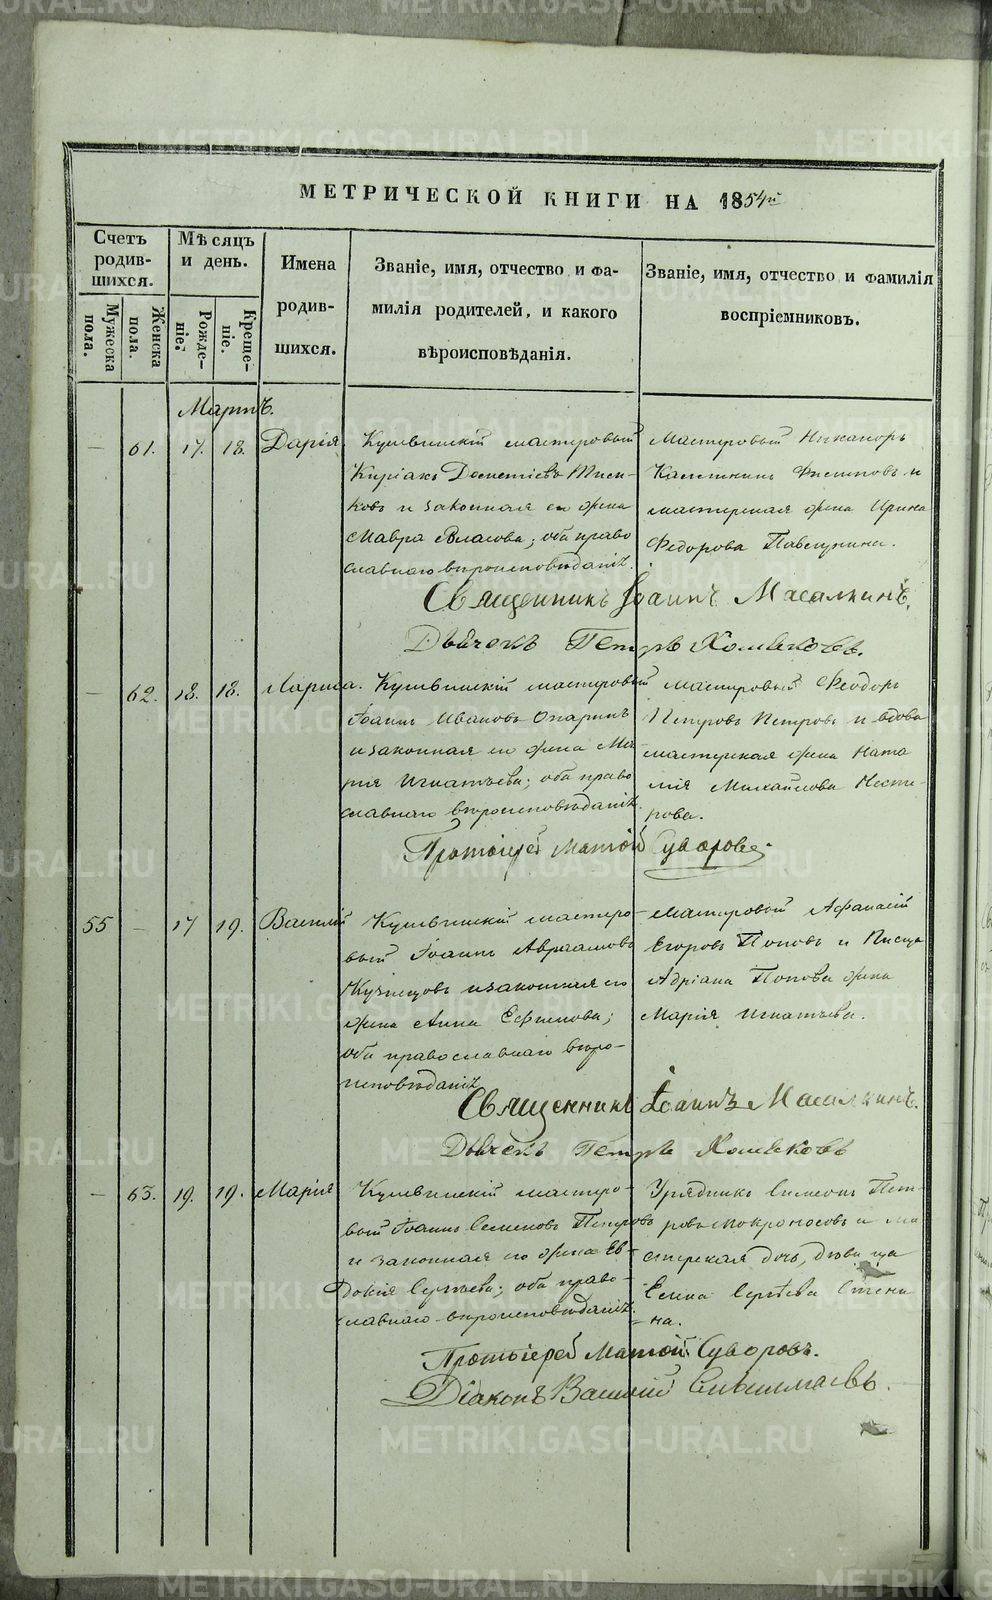 МЕТРИЧЕСКОЙ КНИГИ НА 1854й
Счетъ родив-шихся.
Мужеска пола.
Женска пола.
Мѣсяцъ и день.
Рожде-ніе.
Креще-ніе.
Имена родив-шихся.
Званіе, имя, отчество и фа-
милія родителей, и какого
вѣроисповѣданія.
Званіе, имя, отчество и фамилія
воспріемниковъ.
Мартъ.
— 61. 17. 18. Дарія
Кушвинскій мастеровый
Киріакъ Дометіевъ
и законная его жена
Мавра Власова; оба право
славнаго вѣроисповѣданія.
Мастеровый Никаноръ
Калинкинъ Филиповъ и
мастерская жена Ирина
Федорова
Священникъ Іоаннъ Масалкинъ.
Дьячекъ Петръ Хомяковъ.
— 62. 18. 18. Лариса.
Кушвинскій мастеровый
Іоаннъ Ивановъ Опаринъ
и законная его жена Ма-
рія Игнатьева; оба право
славнаго вѣроисповѣданія.
Мастеровый Феодоръ
Петровъ Петровъ и вдова
мастерская жена Ната
лія Михайлова Несте-
рова.
Протоіерей Матѳій Суворовъ.
55 — 17 19. Василій
Кушвинскій мастеро-
вый Іоаннъ Авраамовъ
Кузнецовъ и законная его
жена Анна Ефимова;
оба православнаго вѣро-
исповѣданія
Мастеровый Афанасій
Егоровъ Поповъ и Писца
Адріана Попова жена
Марія Игнатьева.
Священникъ Іоаннъ Масалкинъ.
Дьячекъ Петръ Хомяковъ
— 63. 19. 19. Марія
Кушвинскій мастеро-
вый Іоаннъ Семеновъ Петровъ
и законная его жена Ев-
докія Сергѣева; оба право-
славнаго вѣроисповѣданія.
Урядникъ Симеонъ Пет-
ровъ Мокроносовъ и ма
стерская дочь, дѣвица
Елена Сергѣева Степи
на.
Протоіерей Матѳій Суворовъ.
Діаконъ Василій
METRIKI.GASO-URAL.RU